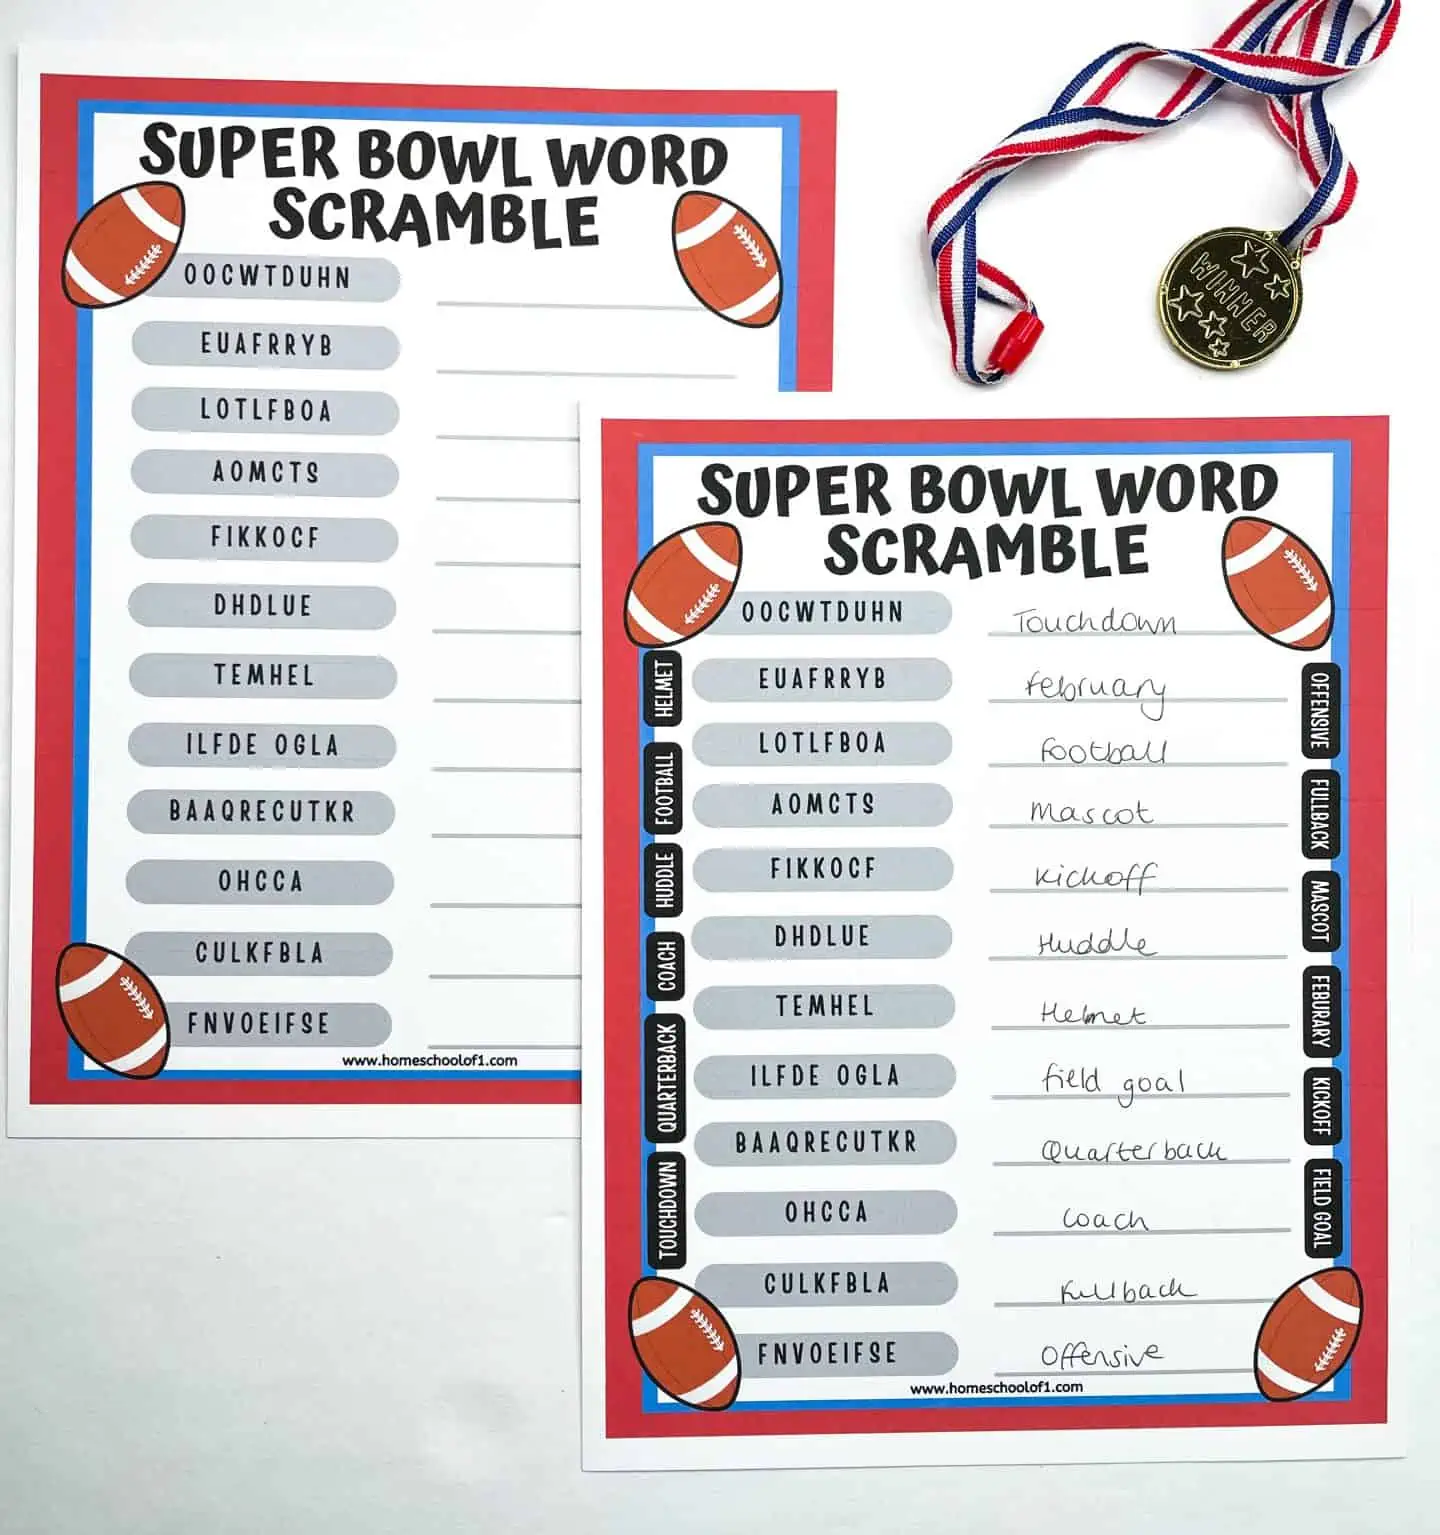 SUPER BOWL WORD
SCRAMBLE
OOCWTDUHN
EUAFRRYB
LOTLFBOA
AOMCTS
FIKKOCF
DHDLUE
TEMHEL
ILFDE OGLA
BAAQRECUTKR
OHCCA
CULKFBLA
FNVOEIFSE
www.homeschoolof1.com
WINNER
SUPER BOWL WORD
SCRAMBLE
OOCWTDUHN Touchdown
EUAFRRYB February
LOTLFBOA Football
AOMCTS Mascot
FIKKOCF Kickoff
DHDLUE Huddle
TEMHEL Helmet
ILFDE OGLA field goal
BAAQRECUTKR Quarterback
OHCCA Coach
CULKFBLA Fullback
FNVOEIFSE Offensive
HELMET
FOOTBALL
HUDDLE
COACH
QUARTERBACK
TOUCHDOWN
OFFENSIVE
FULLBACK
MASCOT
FEBURARY
KICKOFF
FIELD GOAL
www.homeschoolof1.com